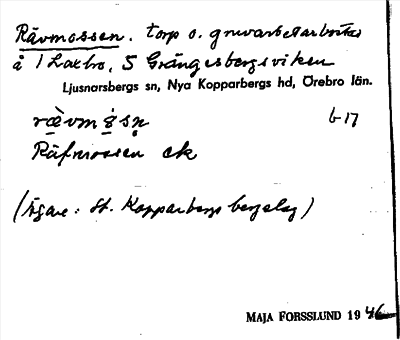 Rävmossen. torp o. gruvarbetarbostad
å 1 Laxbro, S Grängesbergsviken
Ljusnarsbergs sn, Nya Kopparbergs hd, Örebro län.
rævmȯsn 6-17
Räfmossen ek
(Ägare: St. Kopparbergs bergslag)
MAJA FORSSLUND 1946